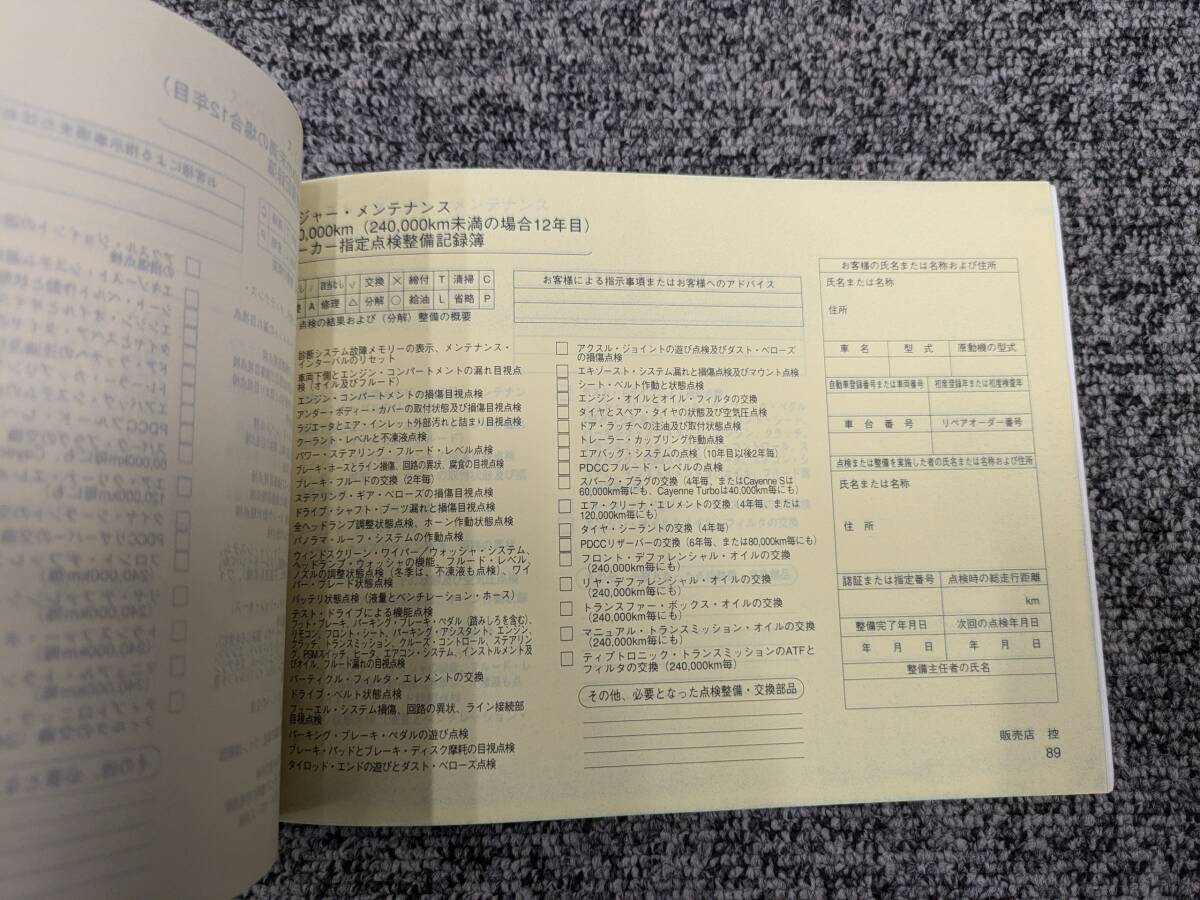 ジャー・メンテナンス
0,000km（240,000km未満の場合12年目）
ーカー指定点検整備記録簿
該当なし 交換 × 締付 T 清掃 C
A 修理 △ 分解 ○ 給油 L 省略 P
点検の結果および（分解）整備の概要
診断システム故障メモリーの表示、メンテナンス・
インターバルのリセット
車両下側とエンジン・コンパートメントの漏れ目視点
検（オイル及びフルード）
エンジン・コンパートメントの損傷目視点検
アンダー・ボディー・カバーの取付状態及び損傷目視点検
ラジエータとエア・インレット外部汚れと詰まり目視点検
クーラント・レベルと不凍液点検
パワー・ステアリング・フルード・レベル点検
ブレーキ・ホースとライン損傷、回路の異状、腐食の目視点検
ブレーキ・フルードの交換（2年毎）
ステアリング・ギア・ベローズの損傷目視点検
ドライブ・シャフト・ブーツ漏れと損傷目視点検
全ヘッドランプ調整状態点検、ホーン作動状態点検
パノラマ・ルーフ・システムの作動点検
ウィンドスクリーン・ワイパー／ウォッシャ・システム、
ヘッドランプ・ウォッシャの機能、フルード・レベル、
ノズルの調整状態点検（冬季は、不凍液も点検）、ワイ
パー・ブレード状態点検
バッテリ状態点検（液量とベンチレーション・ホース）
テスト・ドライブによる機能点検
フット・ブレーキ、パーキング・ブレーキ・ペダル（踏みしろを含む）、
リモコン、フロント・シート、パーキング・アシスタント、エンジン、
クラッチ、トランスミッション、クルーズ・コントロール、ステアリン
グ、PSMスイッチ、ヒータ、エアコン・システム、インストルメント及
びオイル、フルード漏れの目視点検
パーティクル・フィルタ・エレメントの交換
ドライブ・ベルト状態点検
フューエル・システム損傷、回路の異状、ライン接続部
目視点検
パーキング・ブレーキ・ペダルの遊び点検
ブレーキ・パッドとブレーキ・ディスク摩耗の目視点検
タイロッド・エンドの遊びとダスト・ベローズ点検
お客様による指示事項またはお客様へのアドバイス
アクスル・ジョイントの遊び点検及びダスト・ベローズ
の損傷点検
エキゾースト・システム漏れと損傷点検及びマウント点検
シート・ベルト作動と状態点検
エンジン・オイルとオイル・フィルタの交換
タイヤとスペア・タイヤの状態及び空気圧点検
ドア・ラッチへの注油及び取付状態点検
トレーラー・カップリング作動点検
エアバッグ・システムの点検（10年目以後2年毎）
PDCCフルード・レベルの点検
スパーク・プラグの交換（4年毎、またはCayenne Sは
60,000km毎にも、Cayenne Turboは40,000km毎にも）
エア・クリーナ・エレメントの交換（4年毎、または
120,000km毎にも）
タイヤ・シーラントの交換（4年毎）
PDCCリザーバーの交換（6年毎、または80,000km毎にも）
フロント・デファレンシャル・オイルの交換
（240,000km毎にも）
リヤ・デファレンシャル・オイルの交換
（240,000km毎にも）
トランスファー・ボックス・オイルの交換
（240,000km毎にも）
マニュアル・トランスミッション・オイルの交換
（240,000km毎にも）
ティプトロニック・トランスミッションのATFと
フィルタの交換（240,000km毎）
その他、必要となった点検整備・交換部品
お客様の氏名または名称および住所
氏名または名称
住所
車 名 型 式 原動機の型式
自動車登録番号または車両番号 初度登録年または初度検査年
車 台 番 号 リペアオーダー番号
点検または整備を実施した者の氏名または名称および住所
氏名または名称
住 所
認証または指定番号 点検時の総走行距離
km
整備完了年月日 次回の点検年月日
年 月 日 年 月 日
整備主任者の氏名
販売店 控
89